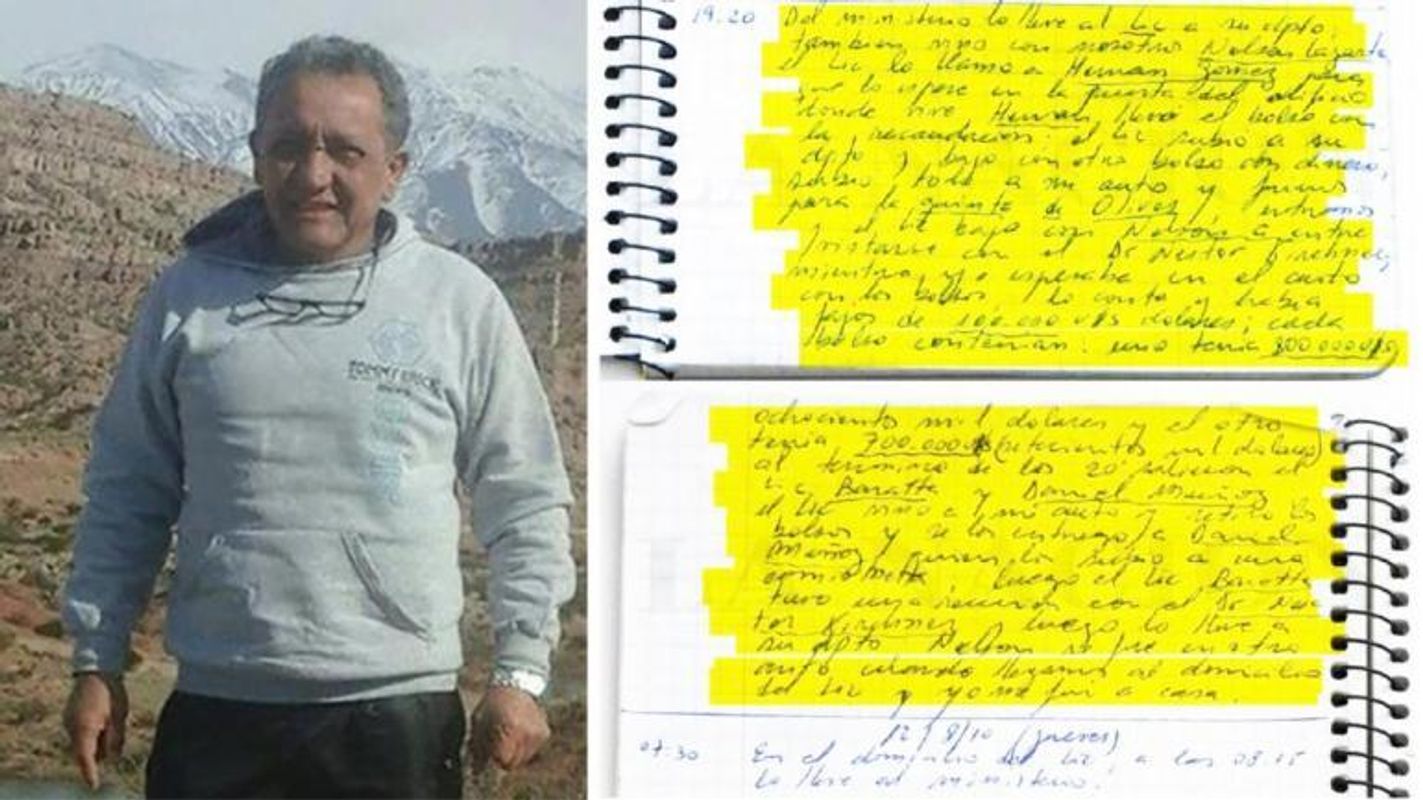 TOMMY
19.20 Del ministerio lo lleve al Lic a su dpto,
tambien vino con nosotros Nelson Lazarte
el Lic lo llamo a Hernan Gomez para
que lo espere en la puerta del edificio
donde vive Hernan, llevó el bolso con
la recaudación. el Lic subio a su
dpto y bajo con otro bolso con dinero,
subio todo a mi auto y fuimos
para la quinta de Olivos, entramos
y el Lic bajo con Nelson a entre
vistarse con el Dr Nestor Kirchner,
mientras yo esperaba en el auto
con los bolsos, lo conte y habia
fajos de 100.000 U$S dolares; cada
bolso contenian: uno tenia 800.000 U$S
ochocientos mil dolares y el otro
tenia 700.000 U$S (setecientos mil dolares)
al termino de los 20 salieron el
Lic Baratta y Daniel Muñoz
el Lic vino a mi auto y retiro los
bolsos y se los entrego a Daniel
Muñoz, quien lo subio a una
camioneta, luego el Lic Baratta
tuvo una reunion con el Dr Nes
tor Kirchner y luego lo lleve a
su dpto Nelson se fue en otro
auto cuando llegamos al domicilio
del Lic y yo me fui a casa.
12/8/10 (jueves)
07:30 En el domicilio del Lic, a las 08.15
lo lleve al ministerio.